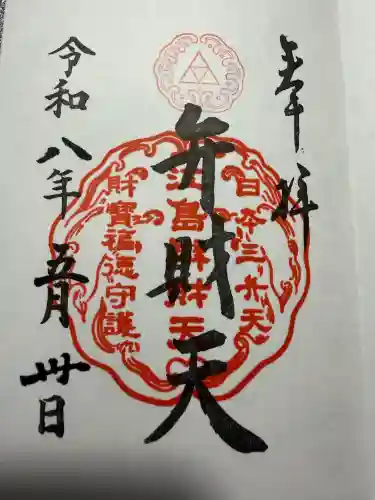 奉拝
日本三大天
江島辨財天
弁財天
財寶福徳守護
令和八年五月卅日